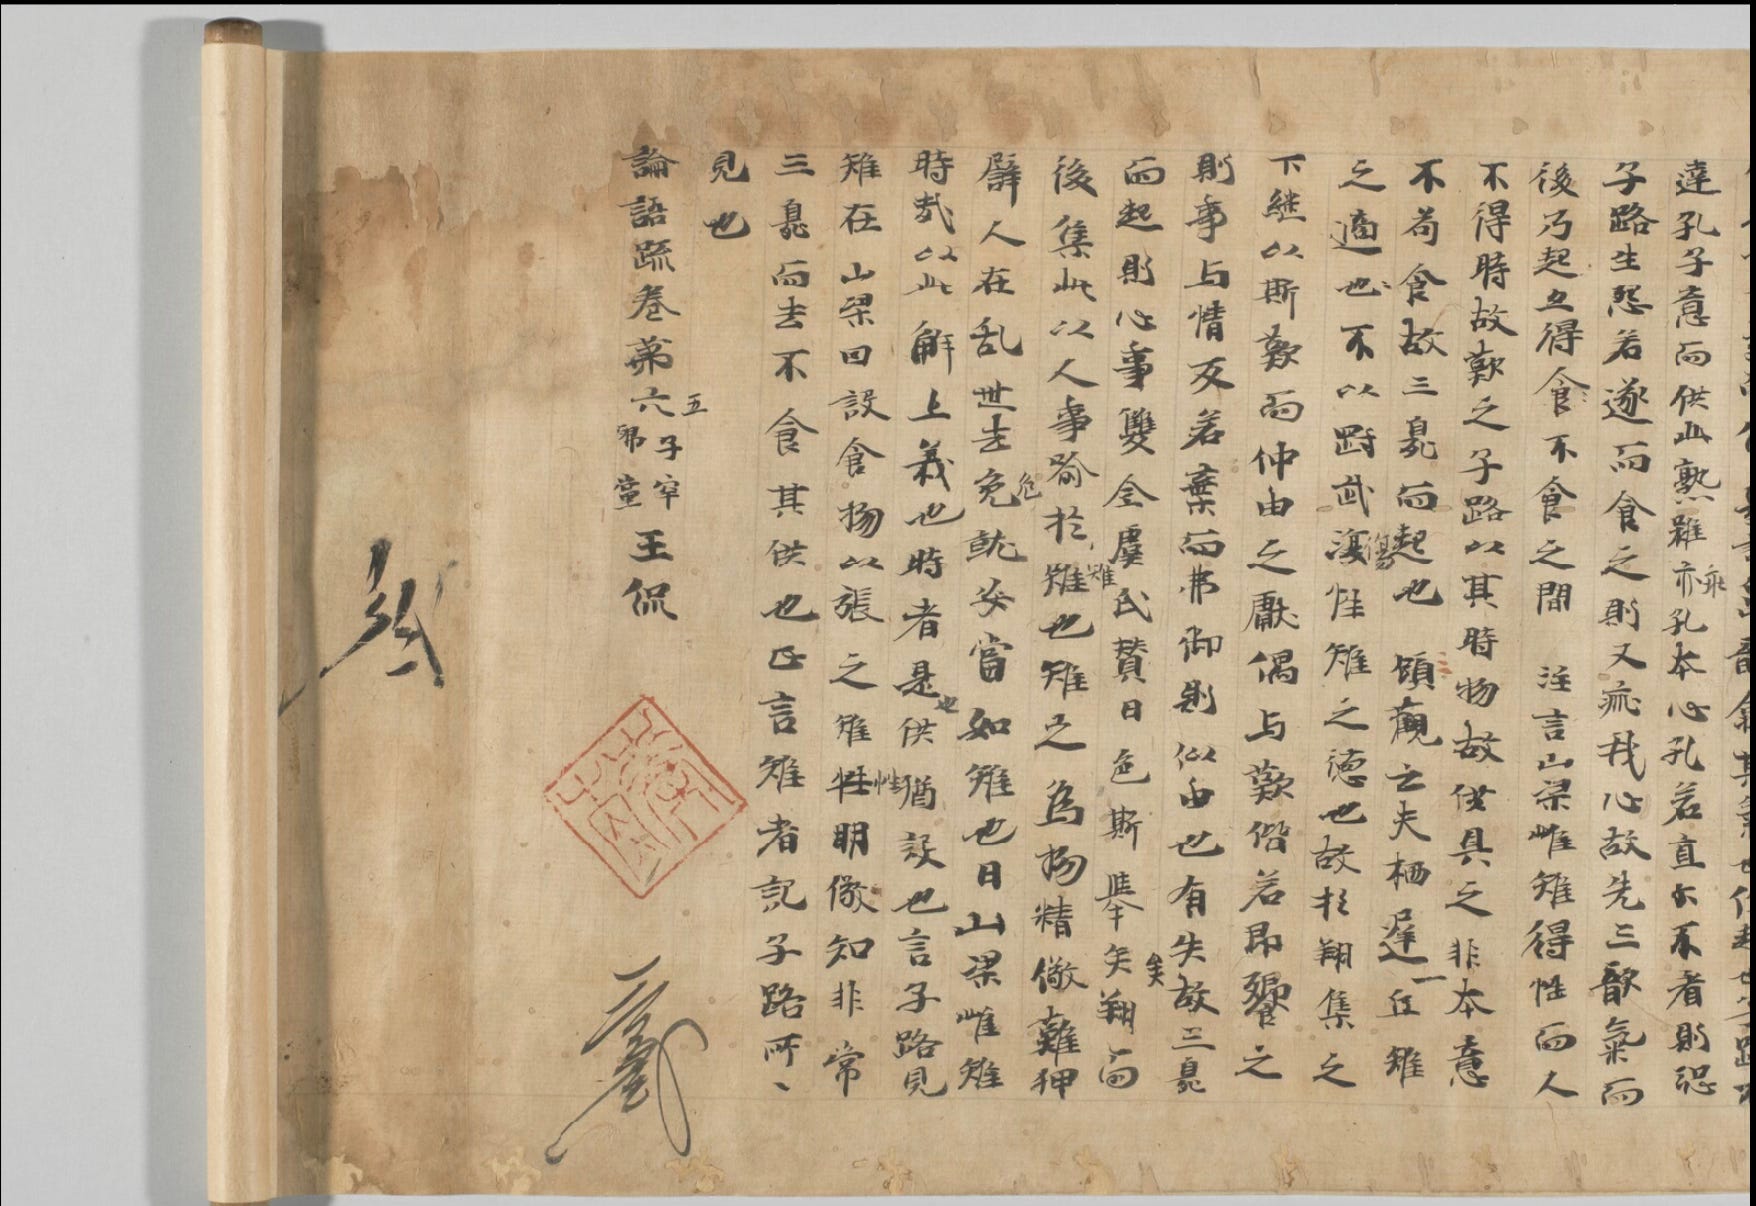 達孔子意而供此熟雉乖孔本心孔若直尓不者則恐
子路生怨若遂而食之則又乖我心故先三歆氣而
後乃起立得食不食之間 注言山梁雌雉得性而人
不得時故歎之子路以其時物故供具之非本意
不苟食故三臭而起也 頋歡云夫栖遅一丘雉
之適也不以剛武傷性雉之德也故於翔集之
下継以斯歎而仲由之獻偶与歎偕若即饗之
則事与情反若棄而弗御則似由也有失故三臭
而起則心事雙全虞氏賛曰色斯舉矣翔而
後集此以人事喻於雉也雉之為物精儆難狎
譬人在乱世去危就安當如雉也曰山梁雌雉
時哉以此解上義也時者是也供猶設也言子路見
雉在山梁因設食物以張之雉性明儆知非常
三臭而去不食其供也正言雉者記子路所
見也
論語疏卷苐六
五
子罕
郷黨
王侃